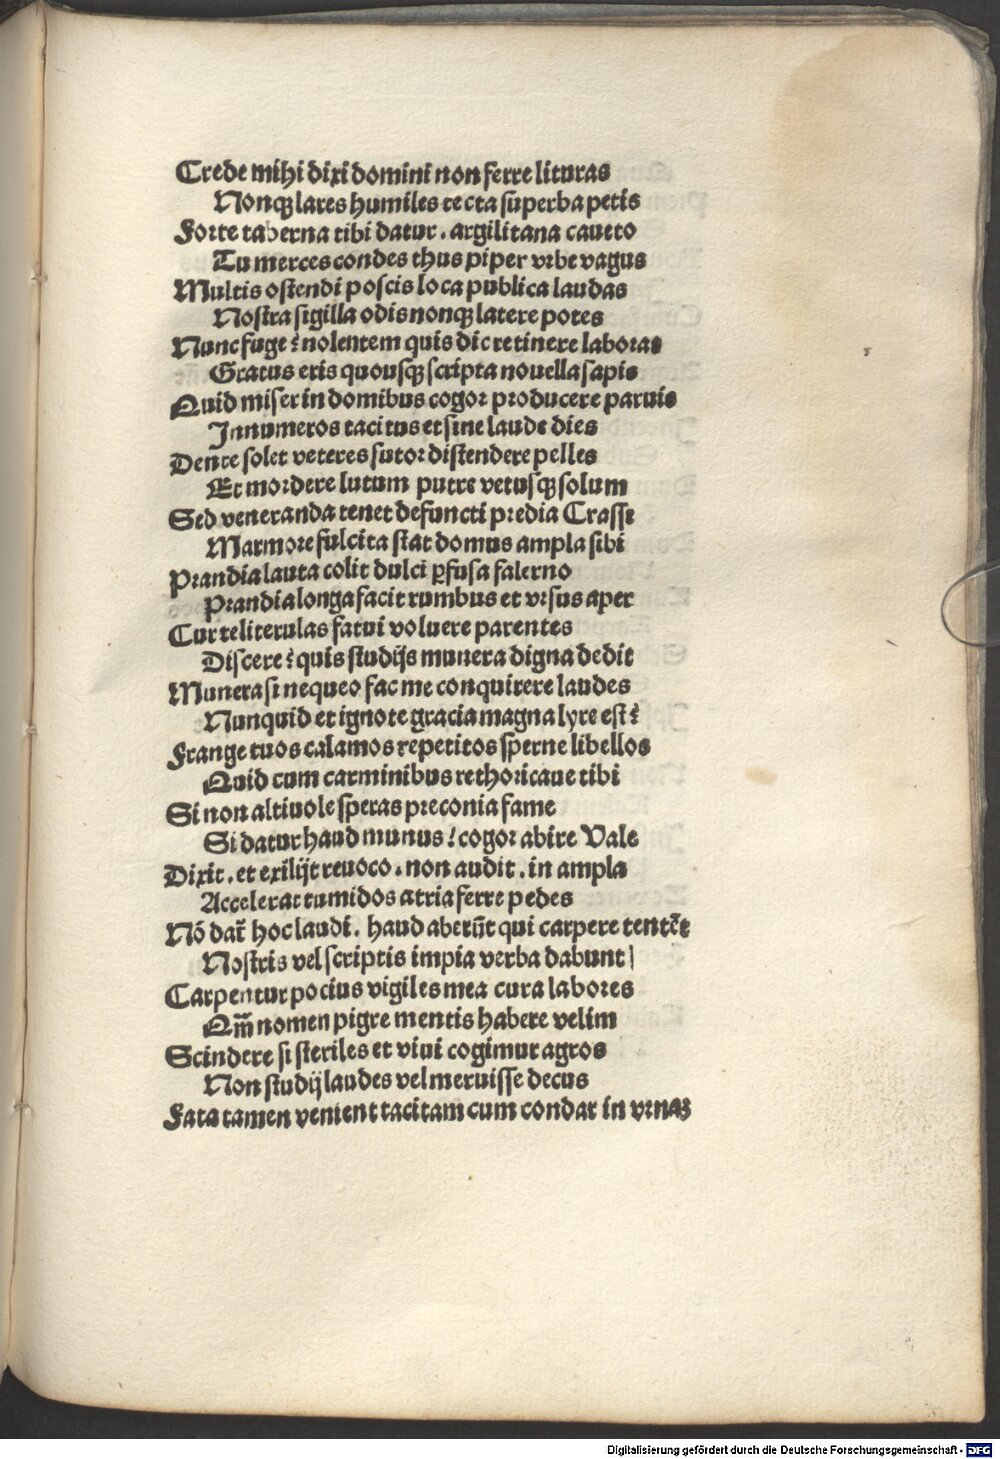 Crede mihi dixi domini non ferre lituras
Nonqꝫ lares humiles tecta superba petis
Forte taberna tibi datur. argilitana caueto
Tu merces condes thus piper vrbe vagus
Multis ostendi poscis loca publica laudas
Nostra sigilla odis nonqꝫ latere potes
Nunc fuge? nolentem quis dic retinere laboras
Gratus eris quousqꝫ scripta nouella sapis
Quid miser in domibus cogor producere paruis
Innumeros tacitus et sine laude dies
Dente solet veteres sutor distendere pelles
Et mordere lutum putre vetusqꝫ solum
Sed veneranda tenet defuncti predia Crassi
Marmore fulcita stat domus ampla sibi
Prandia lauta colit dulci ꝑfusa falerno
Prandia longa facit rumbus et vrsus aper
Cur te literulas fatui voluere parentes
Discere? quis studijs munera digna dedit
Munera si nequeo fac me conquirere laudes
Nunquid et ignote gracia magna lyre est?
Frange tuos calamos repetitos sperne libellos
Quid cum carminibus rethoricaue tibi
Si non altiuole speras preconia fame
Si datur haud munus? cogor abire Vale
Dixit. et exilijt reuoco. non audit. in ampla
Accelerat tumidos atria ferre pedes
Nō dat̄ hoc laudi. haud aberūt qui carpere tentēt
Nostris vel scriptis impia verba dabunt
Carpentur pocius vigiles mea cura labores
Qm̄ nomen pigre mentis habere velim
Scindere si steriles et viui cogimur agros
Non studij laudes vel meruisse decus
Fata tamen venient tacitam cum condar in vrnaꝫ
Digitalisierung gefördert durch die Deutsche Forschungsgemeinschaft - DFG